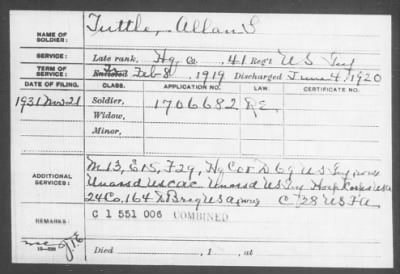 NAME OF SOLDIER: Tuttle, Allan S
SERVICE: Late rank, Hq Co 41 Reg't U S Inf
TERM OF SERVICE: Enlisted Feb 8, 1919 Discharged June 4, 1920
DATE OF FILING. CLASS. APPLICATION NO. LAW. CERTIFICATE NO.
1931 Nov 21 Soldier, 1706682 RE
Widow,
Minor,
M 13, E 15, F 29, Hq Co & D 69 U S Inf
ADDITIONAL SERVICES: Unassd USCAC Unassd US Inf Hosp Corps USA
24 Co, 164 D Brig USA C 38 US FA
REMARKS: C 1 551 006 COMBINED
Died , 1 , at